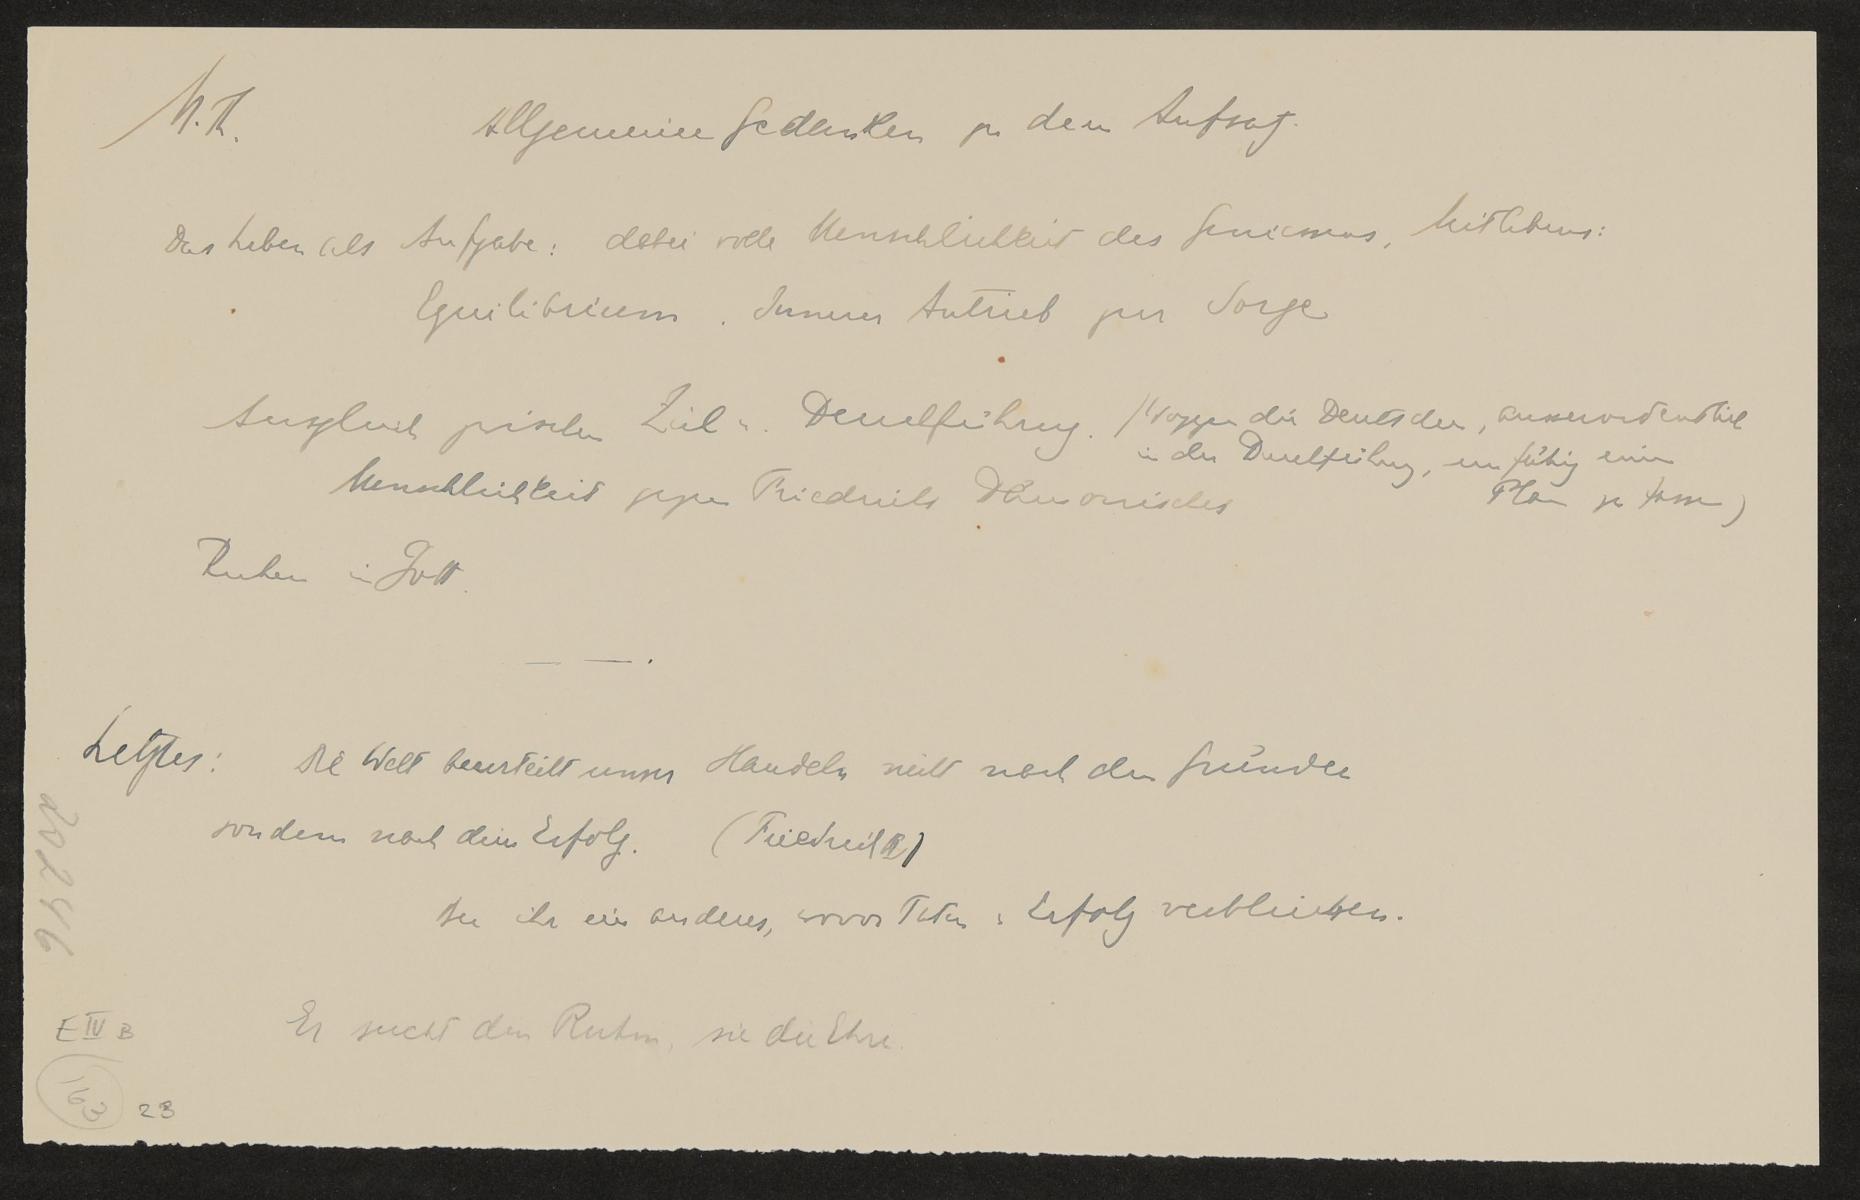 M. Th. Allgemeine Gedanken zu dem Aufsatz.
Das Leben als Aufgabe: dabei volle Menschlichkeit des Geniessens, Mitlebens:
Equilibrium. Innerer Antrieb zur Sorge
Ausgleich zwischen Ziel u. Durchführung. / die Deutschen, ausserordentlich
in der Durchführung, unfähig einen
Plan zu fassen)
Menschlichkeit gegen Friedrichs Dämonisches
Ruhen in Gott.
Letztes: Die Welt beurteilt unser Handeln nicht nach den Gründen
sondern nach dem Erfolg. (Friedrich)
Bei ihr ein anderes, wovor Taten u Erfolg verbleichen.
Er sucht den Ruhm, sie die Ehre.
20246
E IV B
163
23